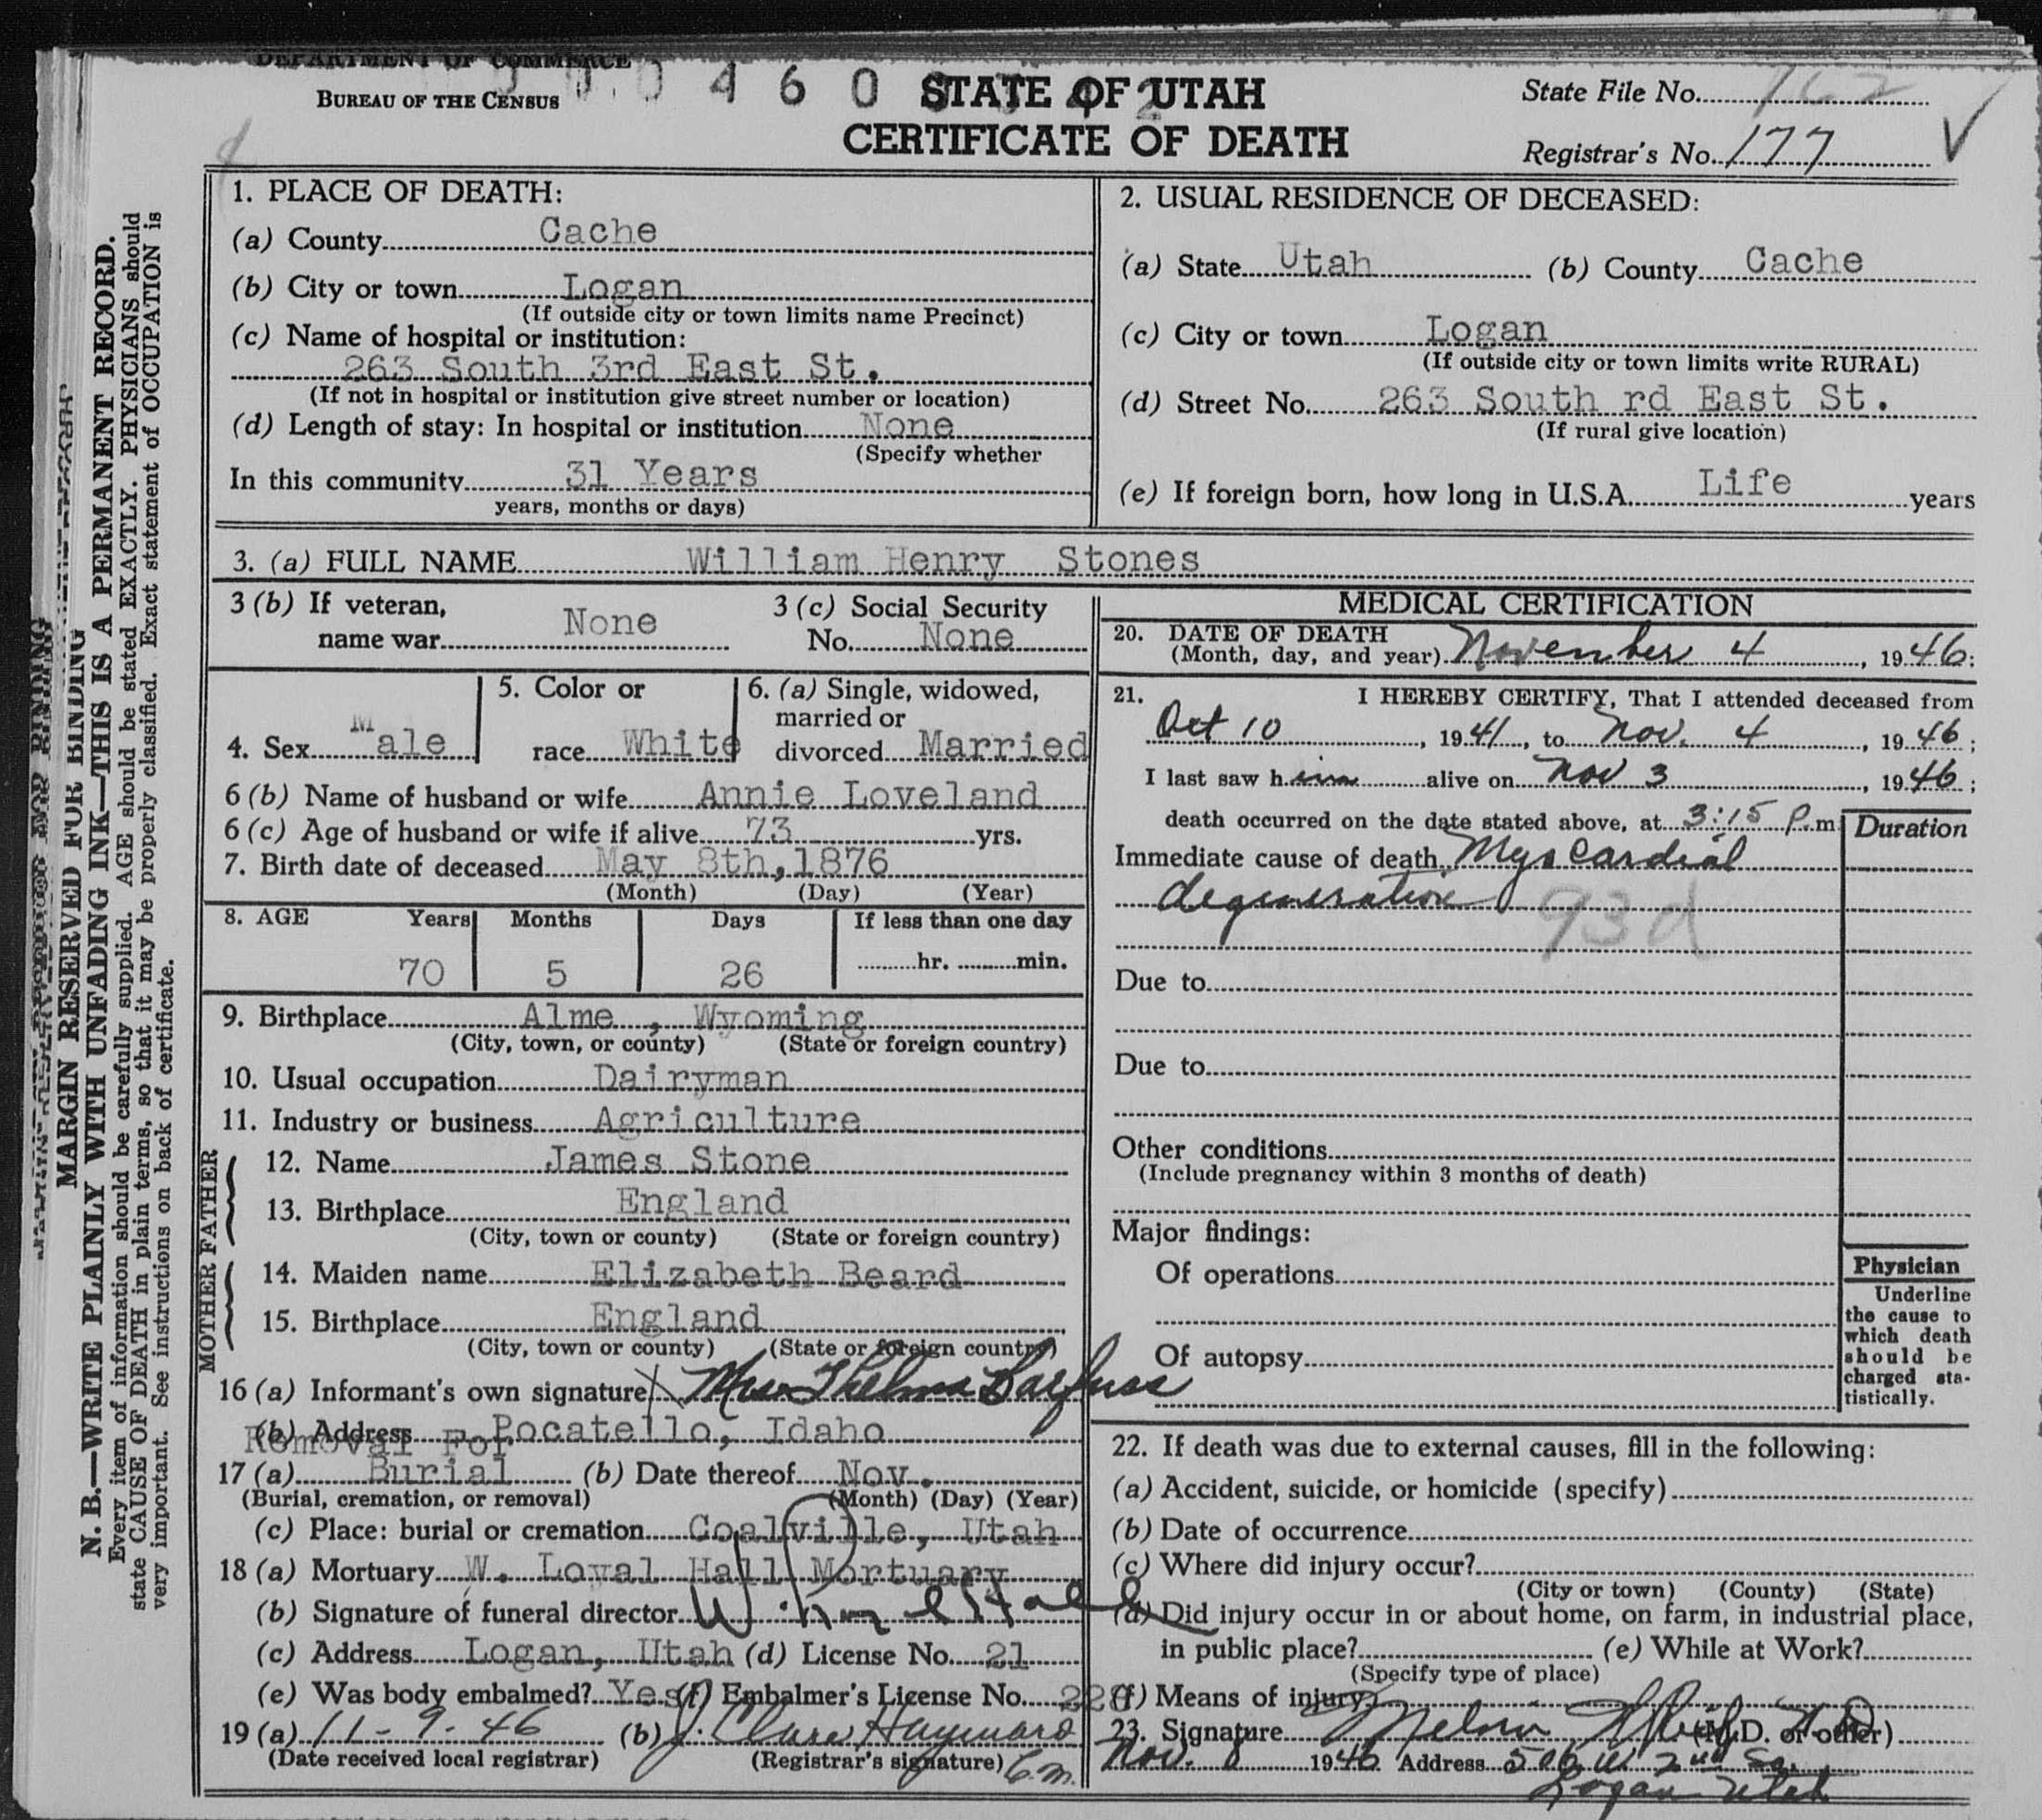 DEPARTMENT OF COMMERCE
BUREAU OF THE CENSUS
STATE OF UTAH
CERTIFICATE OF DEATH
State File No.
Registrar's No. 177
MARGIN RESERVED FOR BINDING
N. B.—WRITE PLAINLY WITH UNFADING INK—THIS IS A PERMANENT RECORD.
Every item of information should be carefully supplied. AGE should be stated EXACTLY. PHYSICIANS should
state CAUSE OF DEATH in plain terms, so that it may be properly classified. Exact statement of OCCUPATION is
very important. See instructions on back of certificate.
1. PLACE OF DEATH:
(a) County Cache
(b) City or town Logan
(If outside city or town limits name Precinct)
(c) Name of hospital or institution:
263 South 3rd East St.
(If not in hospital or institution give street number or location)
(d) Length of stay: In hospital or institution None
(Specify whether
In this community 31 Years
years, months or days)
2. USUAL RESIDENCE OF DECEASED:
(a) State Utah (b) County Cache
(c) City or town Logan
(If outside city or town limits write RURAL)
(d) Street No. 263 South rd East St.
(If rural give location)
(e) If foreign born, how long in U.S.A. Life years
3. (a) FULL NAME William Henry Stones
3 (b) If veteran,
name war None
3 (c) Social Security
No. None
4. Sex Male
5. Color or
race White
6. (a) Single, widowed,
married or
divorced Married
6 (b) Name of husband or wife Annie Loveland
6 (c) Age of husband or wife if alive 73 yrs.
7. Birth date of deceased May 8th, 1876
(Month) (Day) (Year)
8. AGE Years Months Days If less than one day
70 5 26 hr. min.
9. Birthplace Alme , Wyoming
(City, town, or county) (State or foreign country)
10. Usual occupation Dairyman
11. Industry or business Agriculture
FATHER
12. Name James Stone
13. Birthplace England
(City, town or county) (State or foreign country)
MOTHER
14. Maiden name Elizabeth Beard
15. Birthplace England
(City, town or county) (State or foreign country)
16 (a) Informant's own signature Mrs Thelma Barfuss
(b) Address Pocatello, Idaho
Removal For
17 (a) Burial (b) Date thereof Nov.
(Burial, cremation, or removal) (Month) (Day) (Year)
(c) Place: burial or cremation Coalville, Utah
18 (a) Mortuary W. Loyal Hall Mortuary
(b) Signature of funeral director W. Loyal Hall
(c) Address Logan, Utah (d) License No. 21
(e) Was body embalmed? Yes (f) Embalmer's License No.
19 (a) 11-9-46 (b) J. Clare Hayward
(Date received local registrar) (Registrar's signature)
MEDICAL CERTIFICATION
20. DATE OF DEATH
(Month, day, and year) November 4, 1946:
21. I HEREBY CERTIFY, That I attended deceased from
Oct 10, 1941, to Nov. 4, 1946;
I last saw him alive on Nov 3, 1946;
death occurred on the date stated above, at 3:15 P.m
Duration
Immediate cause of death Myocardial
degeneration 93d
Due to
Due to
Other conditions
(Include pregnancy within 3 months of death)
Major findings:
Of operations
Of autopsy
Physician
Underline
the cause to
which death
should be
charged sta-
tistically.
22. If death was due to external causes, fill in the following:
(a) Accident, suicide, or homicide (specify)
(b) Date of occurrence
(c) Where did injury occur?
(City or town) (County) (State)
(d) Did injury occur in or about home, on farm, in industrial place,
in public place? (e) While at Work?
(Specify type of place)
(f) Means of injury
23. Signature (M.D. or other)
Nov. 1946 Address
Logan Utah